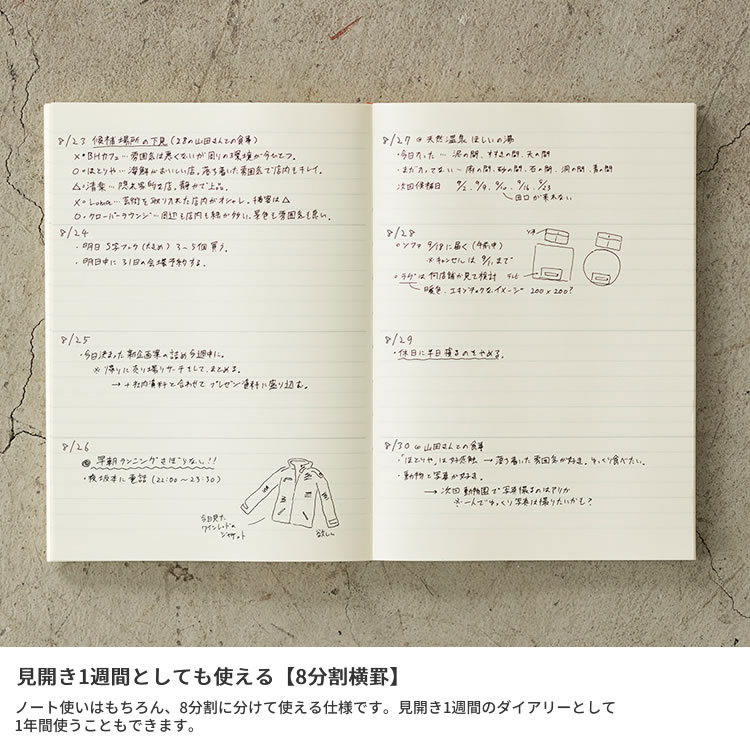 8/23 候補場所の下見(28の山田さんとの食事)
×・BHカフェ…雰囲気は悪くないが周りの環境が今ひとつ。
○・ほとりや…海鮮がおいしい店。落ち着いた雰囲気で店内もキレイ。
△・清葉…隠れ家的な店、静かで上品。
×・Luna…芸術を取り入れた店内がオシャレ。接客は△
○・クローバーラウンジ…周辺も店内も緑が多い、景色も雰囲気も良い。
8/24
・明日 S字フック(大きめ) 3〜5個買う。
・明日中に31日の会場予約する。
8/25
・今日決まった新企画案の詰め今週中に。
※帰りに売り場リサーチをして、まとめる。
→+社内資料と合わせてプレゼン資料に盛り込む。
8/26
早朝ランニングさぼらない!!
・夜坂本に電話(22:00〜23:30)
今日見た
ワインレッドの
ジャケット
欲しい
8/27 @天然温泉 ほしいの湯
・今日入った…泥の間、すすきの間、天の間
・まだ入ってない…雨の間、砂の間、石の間、洞の間、青の間
次回候補日 9/2, 9/9, 9/10, 9/16, 9/23
田口が来れない
8/28
ソファ 9/18に届く(午前中)
※キャンセルは9/11まで
ソファ
ラグは何店舗か見て検討
暖色、エキゾチックなイメージ 200×200?
8/29
・休日に半日寝るのをやめる。
8/30 @山田さんとの食事
・「ほとりや」は好感触 → 落ち着いた雰囲気が好き。ゆっくり食べたい。
・動物と写真が好き。
→次回動物園で写真撮るのはアリか
※一人でゆっくり写真は撮りたいかも?
見開き1週間としても使える【8分割横罫】
ノート使いはもちろん、8分割に分けて使える仕様です。見開き1週間のダイアリーとして
1年間使うこともできます。